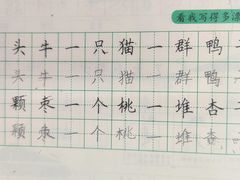 看我写得多漂
头牛一只猫一群鸭一
头牛一只猫一群鸭
颗枣一个桃一堆杏二
颗枣一个桃一堆杏